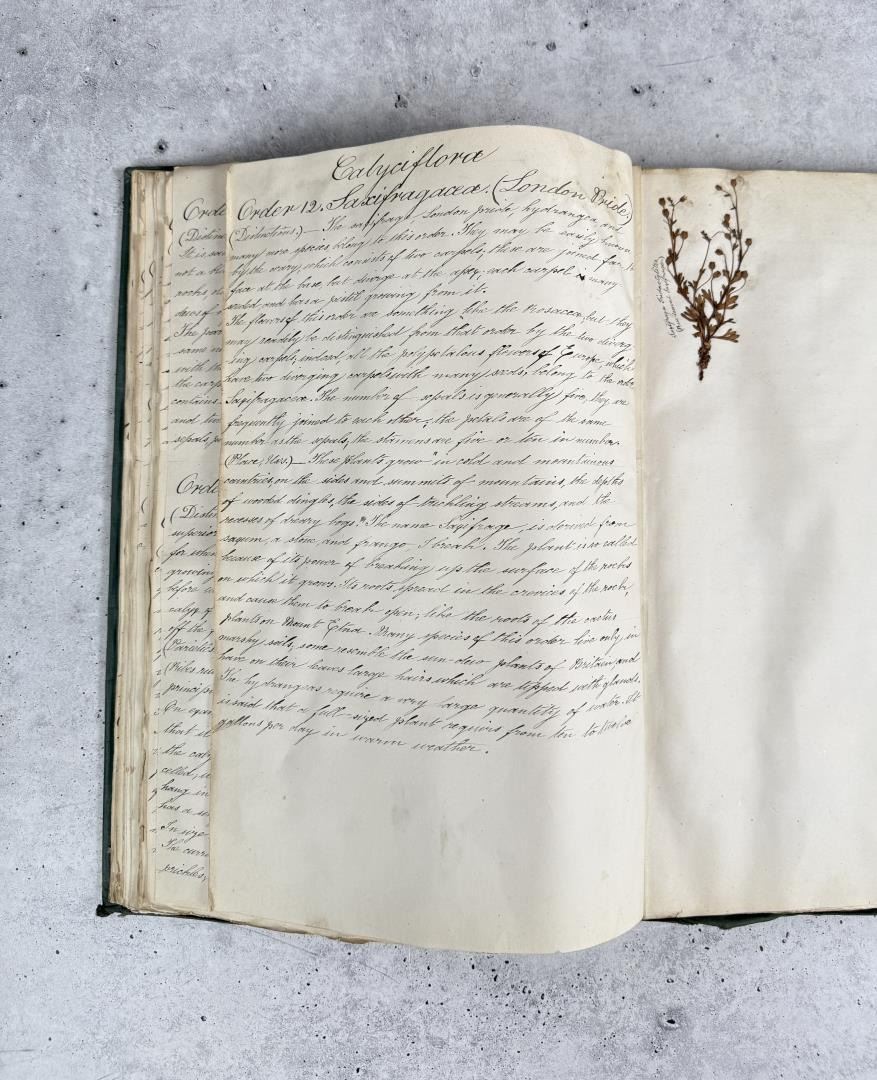 Calyciflora
Order 12. Saxifragaceæ. (London Pride.)
(Distinctions.)— The saxifrage, London pride, hydrangea, and
many more species, belong to this order. They may be easily known
by the ovary, which consists of two carpels; these are joined face to
face at the base, but diverge at the apex; each carpel is many
seeded and has a pistil growing from it.
The flowers of this order are something like the Rosaceæ, but they
may readily be distinguished from that order by the two diverg-
ing carpels; indeed, all the polypetalous flowers of Europe, which
have two diverging carpels with many seeds, belong to the order
Saxifragaceæ. The number of sepals is generally five, they are
frequently joined to each other; the petals are of the same
number as the sepals, the stamens are five or ten in number.
(Place, Uses.)— These plants grow "in cold and mountainous
countries, on the sides and summits of mountains, the depths
of wooded dingles, the sides of trickling streams, and the
recesses of dreary bogs." The name Saxifrage, is derived from
saxum, a stone, and frango, I break. The plant is so called
because of its power of breaking up the surface of the rocks
on which it grows. Its roots spread in the crevices of the rocks,
and cause them to break open; like the roots of the cactus
plants on Mount Etna. Many species of this order live only in
marshy soils, some resemble the sun-dew plants of Britain, and
have on their leaves large hairs which are tipped with glands.
The hydrangeas require a very large quantity of water. It
is said that a full-sized plant requires from ten to twelve
gallons per day in warm weather.
Orde
(Distin
It is
not a
rocks,
does of
The
same
with th
the carp
contains
and
sepals
Orde
(Disti
superior
for
growing
before
calyx of
off the
(Varieties
Ribes
princip
On
that
the caly
called,
hang in
has a
In size
The curra
prickles,